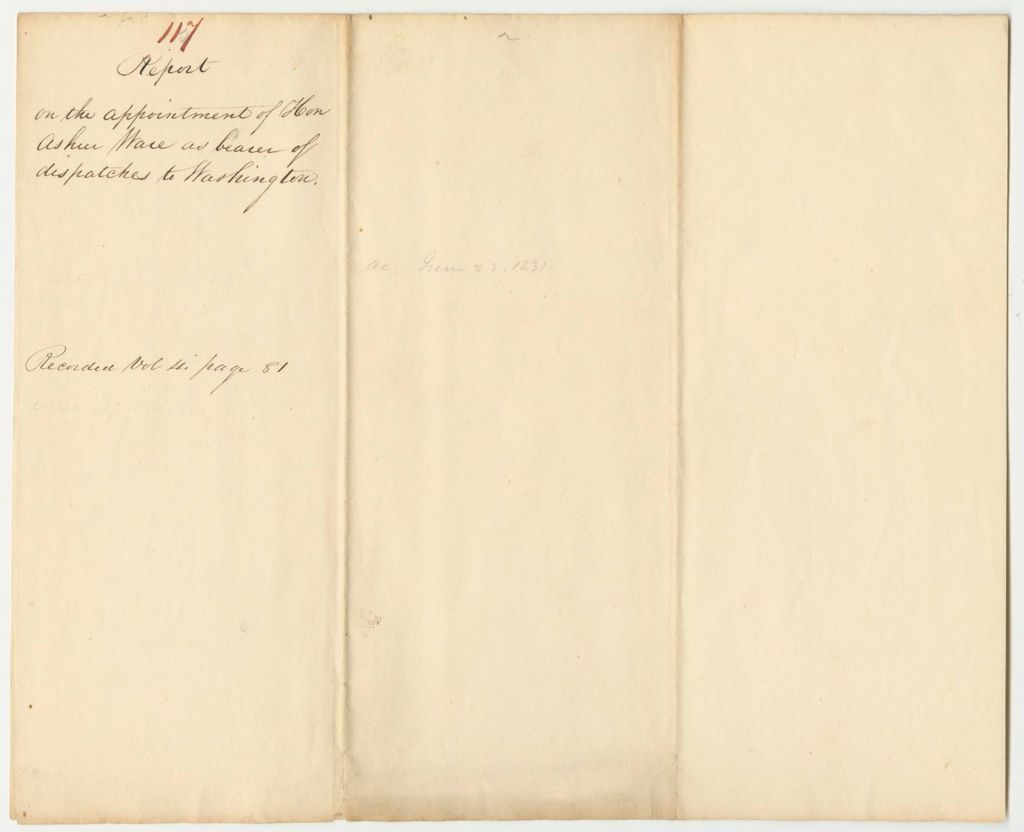 117
Report
on the appointment of Hon
Asher Ware as bearer of
dispatches to Washington.
Recorded Vol 4. page 81
ac. June 23, 1831